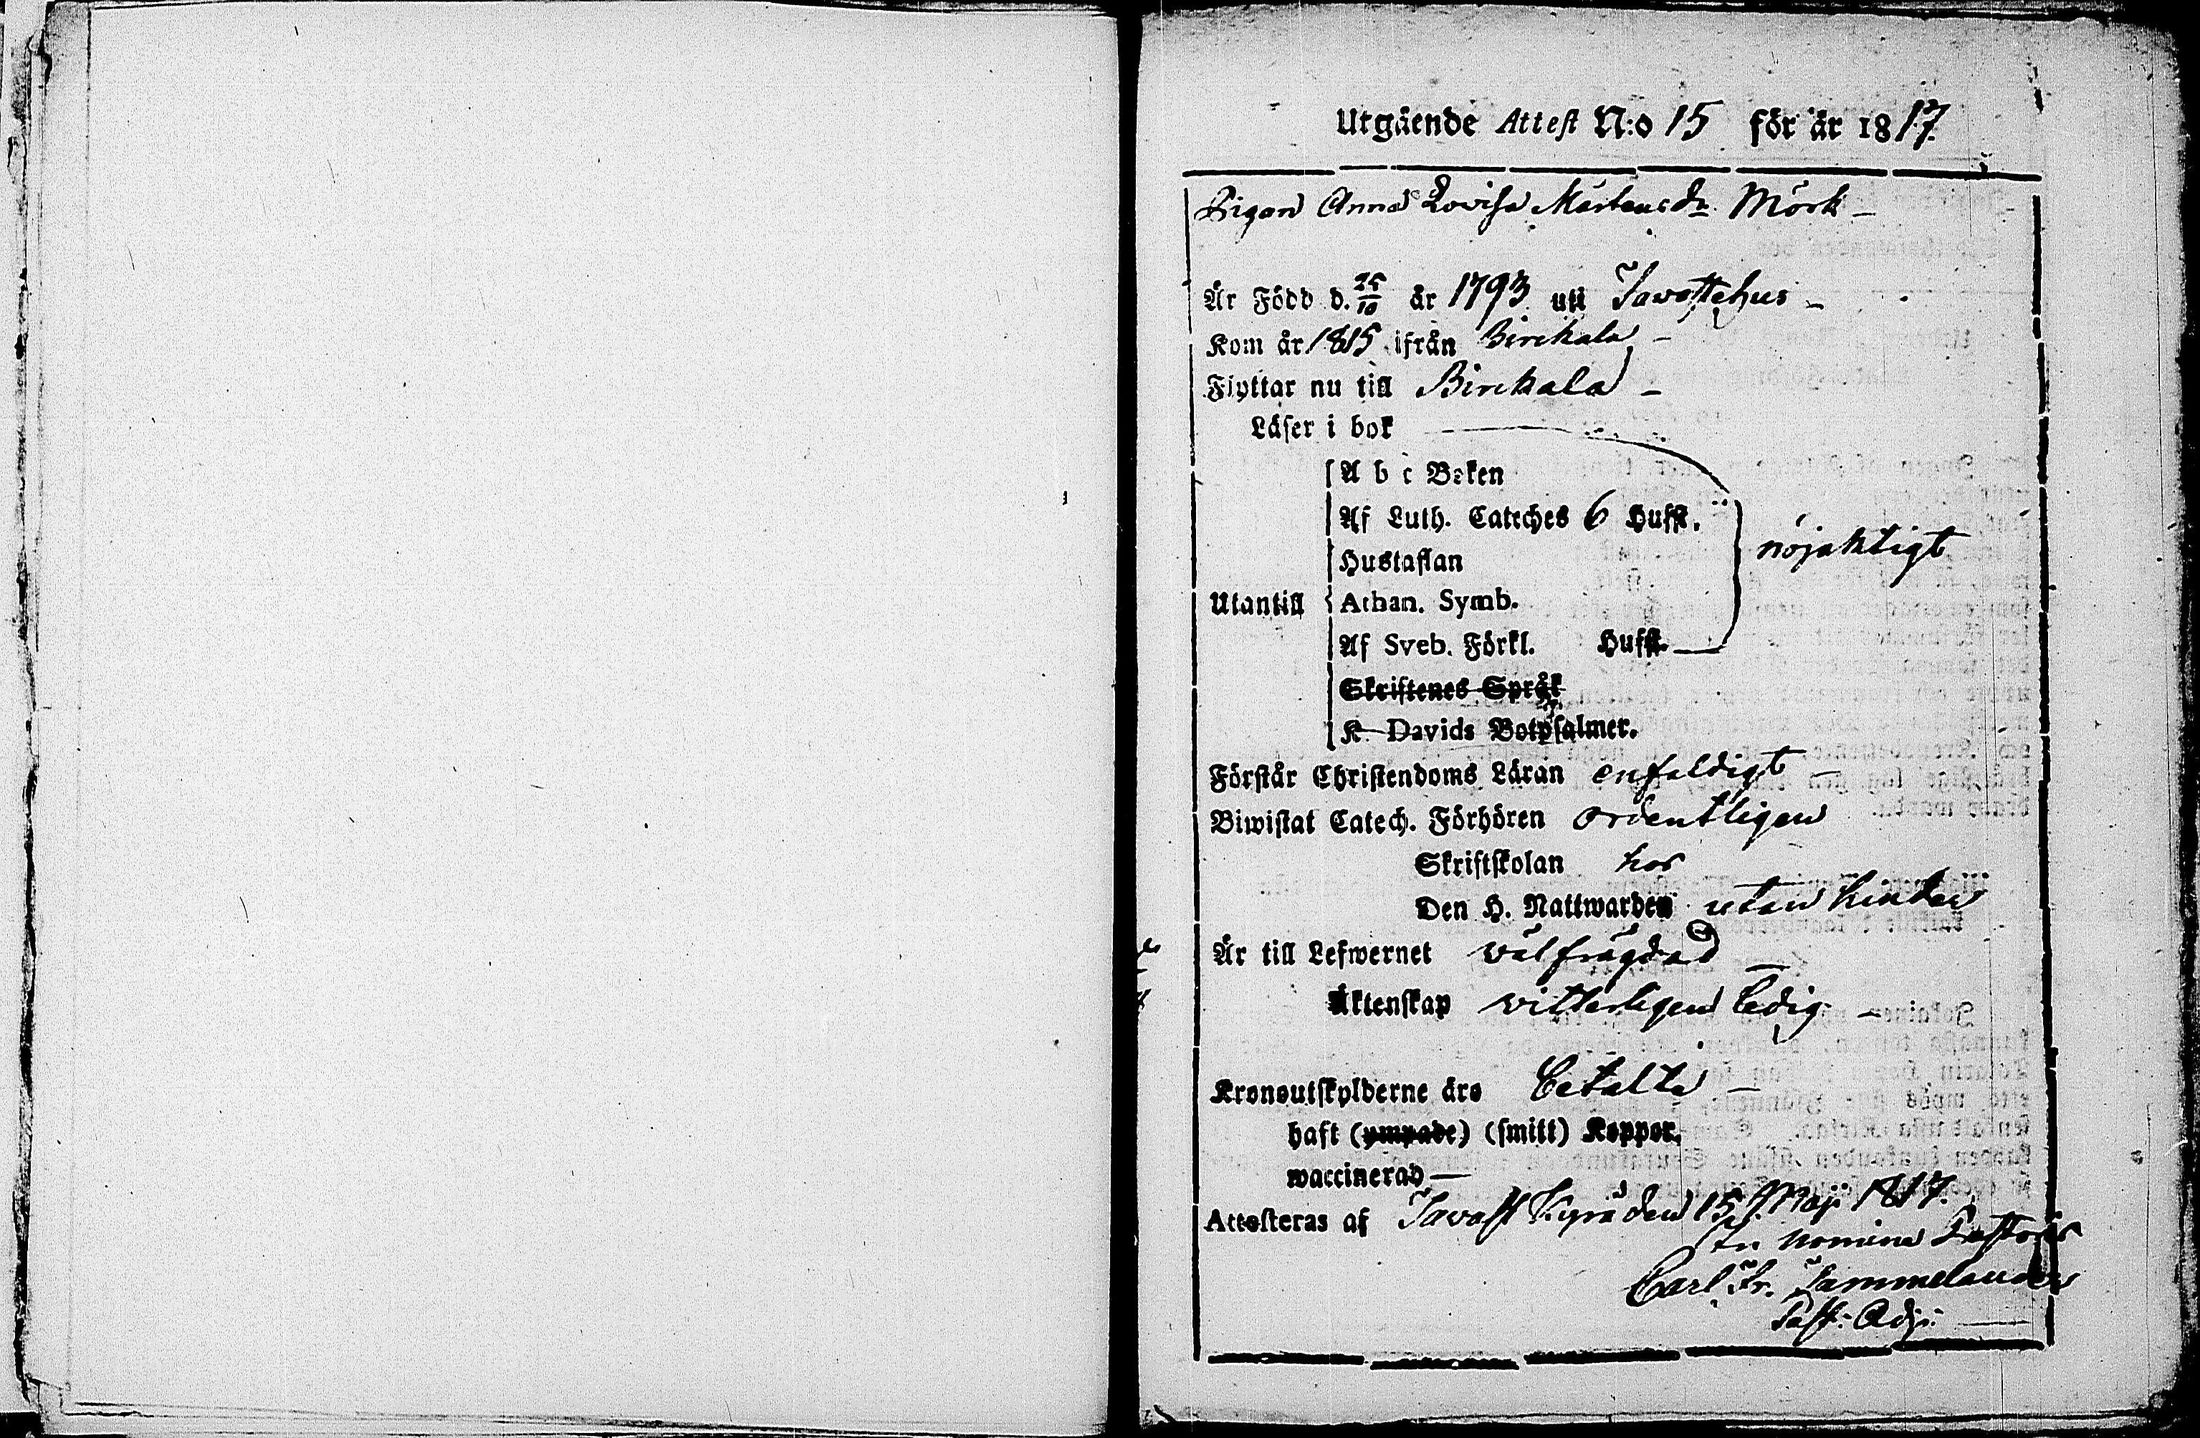 Utgående Attest N:o 15 för år 1817.
Pigan Anna Lovisa Mårtensdr. Mörk –
Är Född d. 25/10 år 1793 uti Tavastehus –
Kom år 1815 ifrån Birckala –
Flyttar nu till Birckala –
Läser i bok
A b c Boken
Af Luth. Cateches 6 Hufst.
nöjaktigt
Hustaflan
Utantill Athan. Symb.
Af Sveb. Förkl. Hufst.
Skriftenes Språk
K. Davids Botpsalmer.
Förstår Christendoms Läran enfaldigt –
Biwistat Catech. Förhören ordentligen
Skriftskolan har
Den H. Nattwarden utan hinder
Är till Lefwernet wälfrägdad –
Äktenskap witterligen ledig –
Kronoutskylderne äro betalta –
haft (ympade) (smitt) Koppor.
waccinerad —
Attesteras af Tavast Kyrö den 15 Maji 1817.
In nomine Pastoris
Carl Fr. Tammelander
Past. Adj.